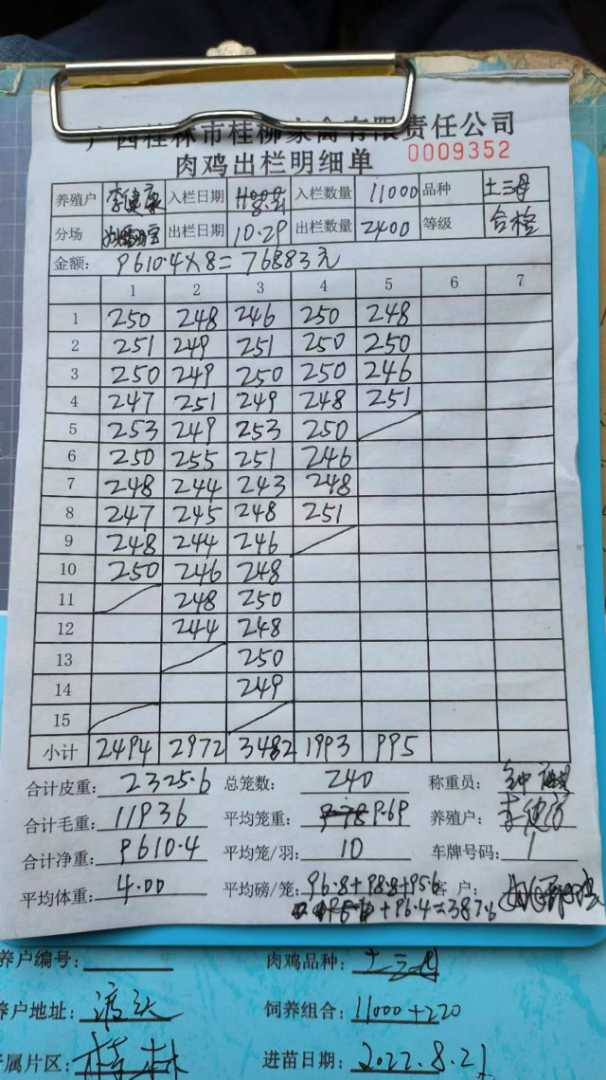 广西桂林市桂柳家禽有限责任公司
肉鸡出栏明细单 0009352
养殖户 李健康 入栏日期 8.21 入栏数量 11000 品种 土三母
分场 出栏日期 10.29 出栏数量 2400 等级 合格
金额: 9610.4×8=76883元
1 2 3 4 5 6 7
1 250 248 246 250 248
2 251 249 251 250 250
3 250 249 250 250 246
4 247 251 249 248 251
5 253 249 253 250
6 250 255 251 246
7 248 244 243 248
8 247 245 248 251
9 248 244 246
10 250 246 248
11 248 250
12 244 248
13 250
14 249
15
小计 2494 2972 3482 1993 995
合计皮重: 2325.6 总笼数: 240 称重员:
合计毛重: 11936 平均笼重: 9.69 养殖户: 李健康
合计净重: 9610.4 平均笼/羽: 10 车牌号码: 1
平均体重: 4.00 平均磅/笼: 96.8+98.8+95.6 客户:
+96.4=387.6
养户编号: 肉鸡品种: 土三母
养户地址: 渡头 饲养组合: 11000+220
所属片区: 桂林 进苗日期: 2022.8.21